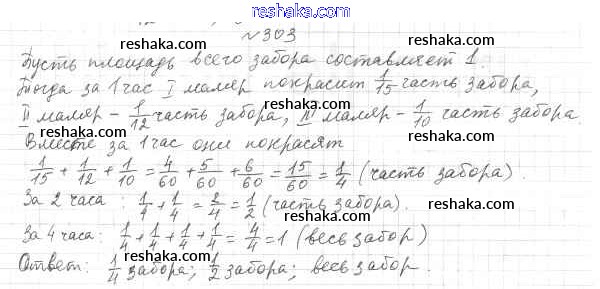 reshaka.com
№303
reshaka.com reshaka.com
Пусть площадь всего забора составляет 1.
Тогда за 1 час I маляр покрасит 1/15 часть забора,
II маляр - 1/12 часть забора, III маляр - 1/10 часть забора.
reshaka.com reshaka.com
Вместе за 1 час они покрасят
1/15 + 1/12 + 1/10 = 4/60 + 5/60 + 6/60 = 15/60 = 1/4 (часть забора).
reshaka.com reshaka.com
За 2 часа: 1/4 + 1/4 = 2/4 = 1/2 (часть забора).
За 4 часа: 1/4 + 1/4 + 1/4 + 1/4 = 4/4 = 1 (весь забор)
reshaka.com reshaka.com
Ответ: 1/4 забора; 1/2 забора; весь забор.
reshaka.com